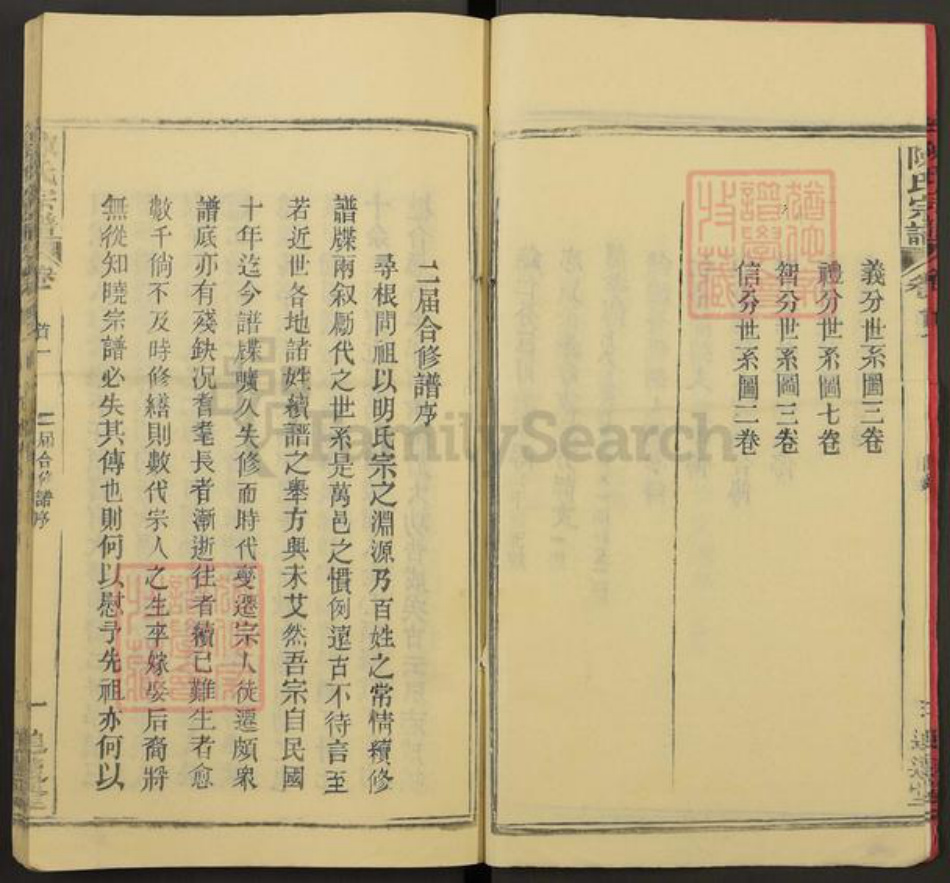 陳氏宗譜
義分世系圖三卷
禮分世系圖七卷
智分世系圖三卷
信分世系圖二卷
二届合修譜序
尋根問祖以明氏宗之淵源乃百姓之常情續修
譜牒兩叙勵代之世系是萬邑之慣例遠古不待言至
若近世各地諸姓續譜之舉方興未艾然吾宗自民國
十年迄今譜牒曠久失修而時代變遷宗人徒遷頗衆
譜底亦有殘鈌况耆耄長者漸逝往者續已難生者愈
數千倘不及時修繕則數代宗人之生卒嫁娶后裔將
無從知曉宗譜必失其傳也則何以慰予先祖亦何以
首一
二届合修譜序
一
FamilySearch